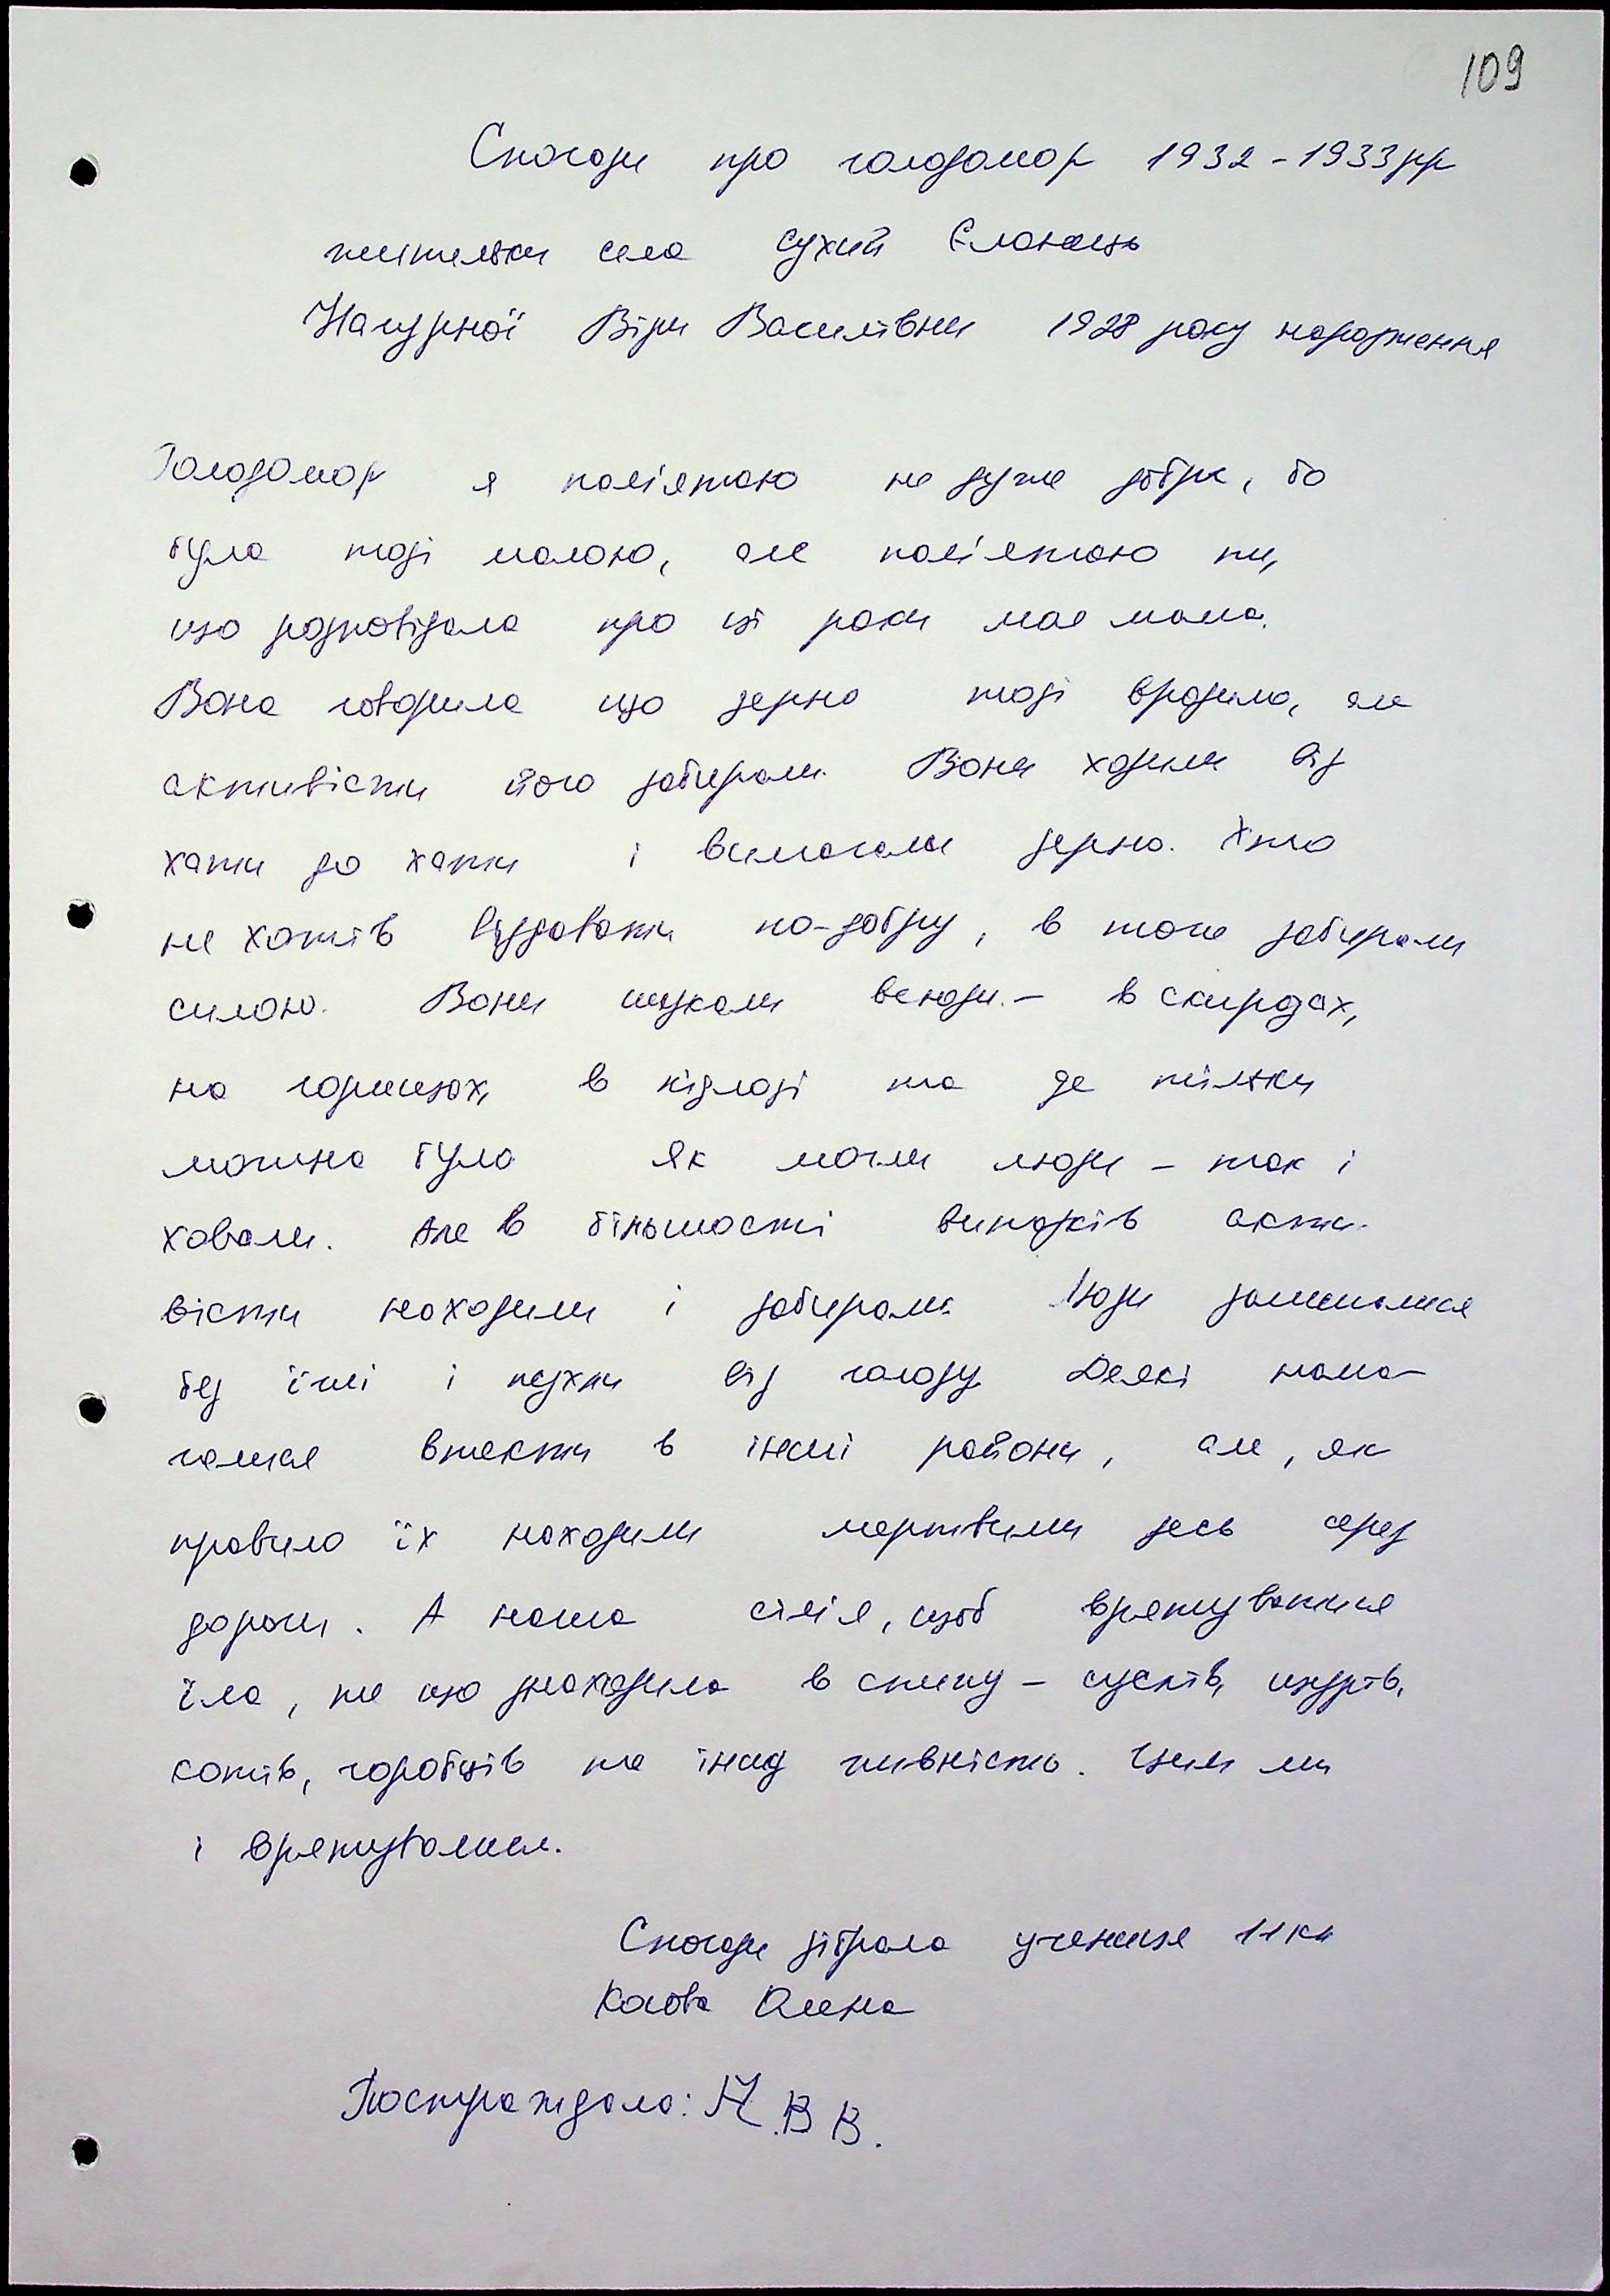 109
Спогади про голодомор 1932-1933рр
жительки села Сухий Єланець
Нагурної Віри Василівни 1928 року народження
Голодомор я пам'ятаю не дуже добре, бо
була тоді малою, але пам'ятаю те,
що розповідала про ці роки моя мама.
Вона говорила що зерно тоді вродило, але
активісти його забирали. Вони ходили від
хати до хати і вимагали зерно. Хто
не хотів віддавати по-добру, в того забирали
силою. Вони шукали всюди – в скирдах,
на горищах, в підлозі та де тільки
можна було. Як могли люди – так і
ховали. Але в більшості випадків акти-
вісти находили і забирали. Люди залишалися
без їжі і пухли від голоду. Деякі нама-
галися втекти в інші райони, але, як
правило їх находили мертвими десь серед
дороги. А наша сім'я, щоб врятуватися
їла, те що знаходила в степу – сусків, щурів,
котів, горобців та іншу живність. Цим ми
і врятувалися.
Спогади зібрала учениця 11 кл
Олена
Постраждала: Н.В.В.